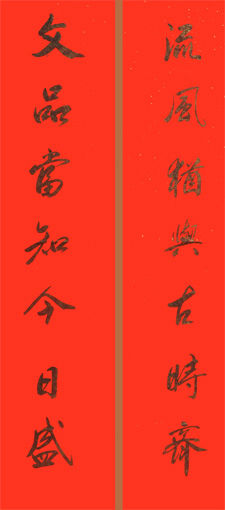 流風猶與古時齊
文品當知今日盛